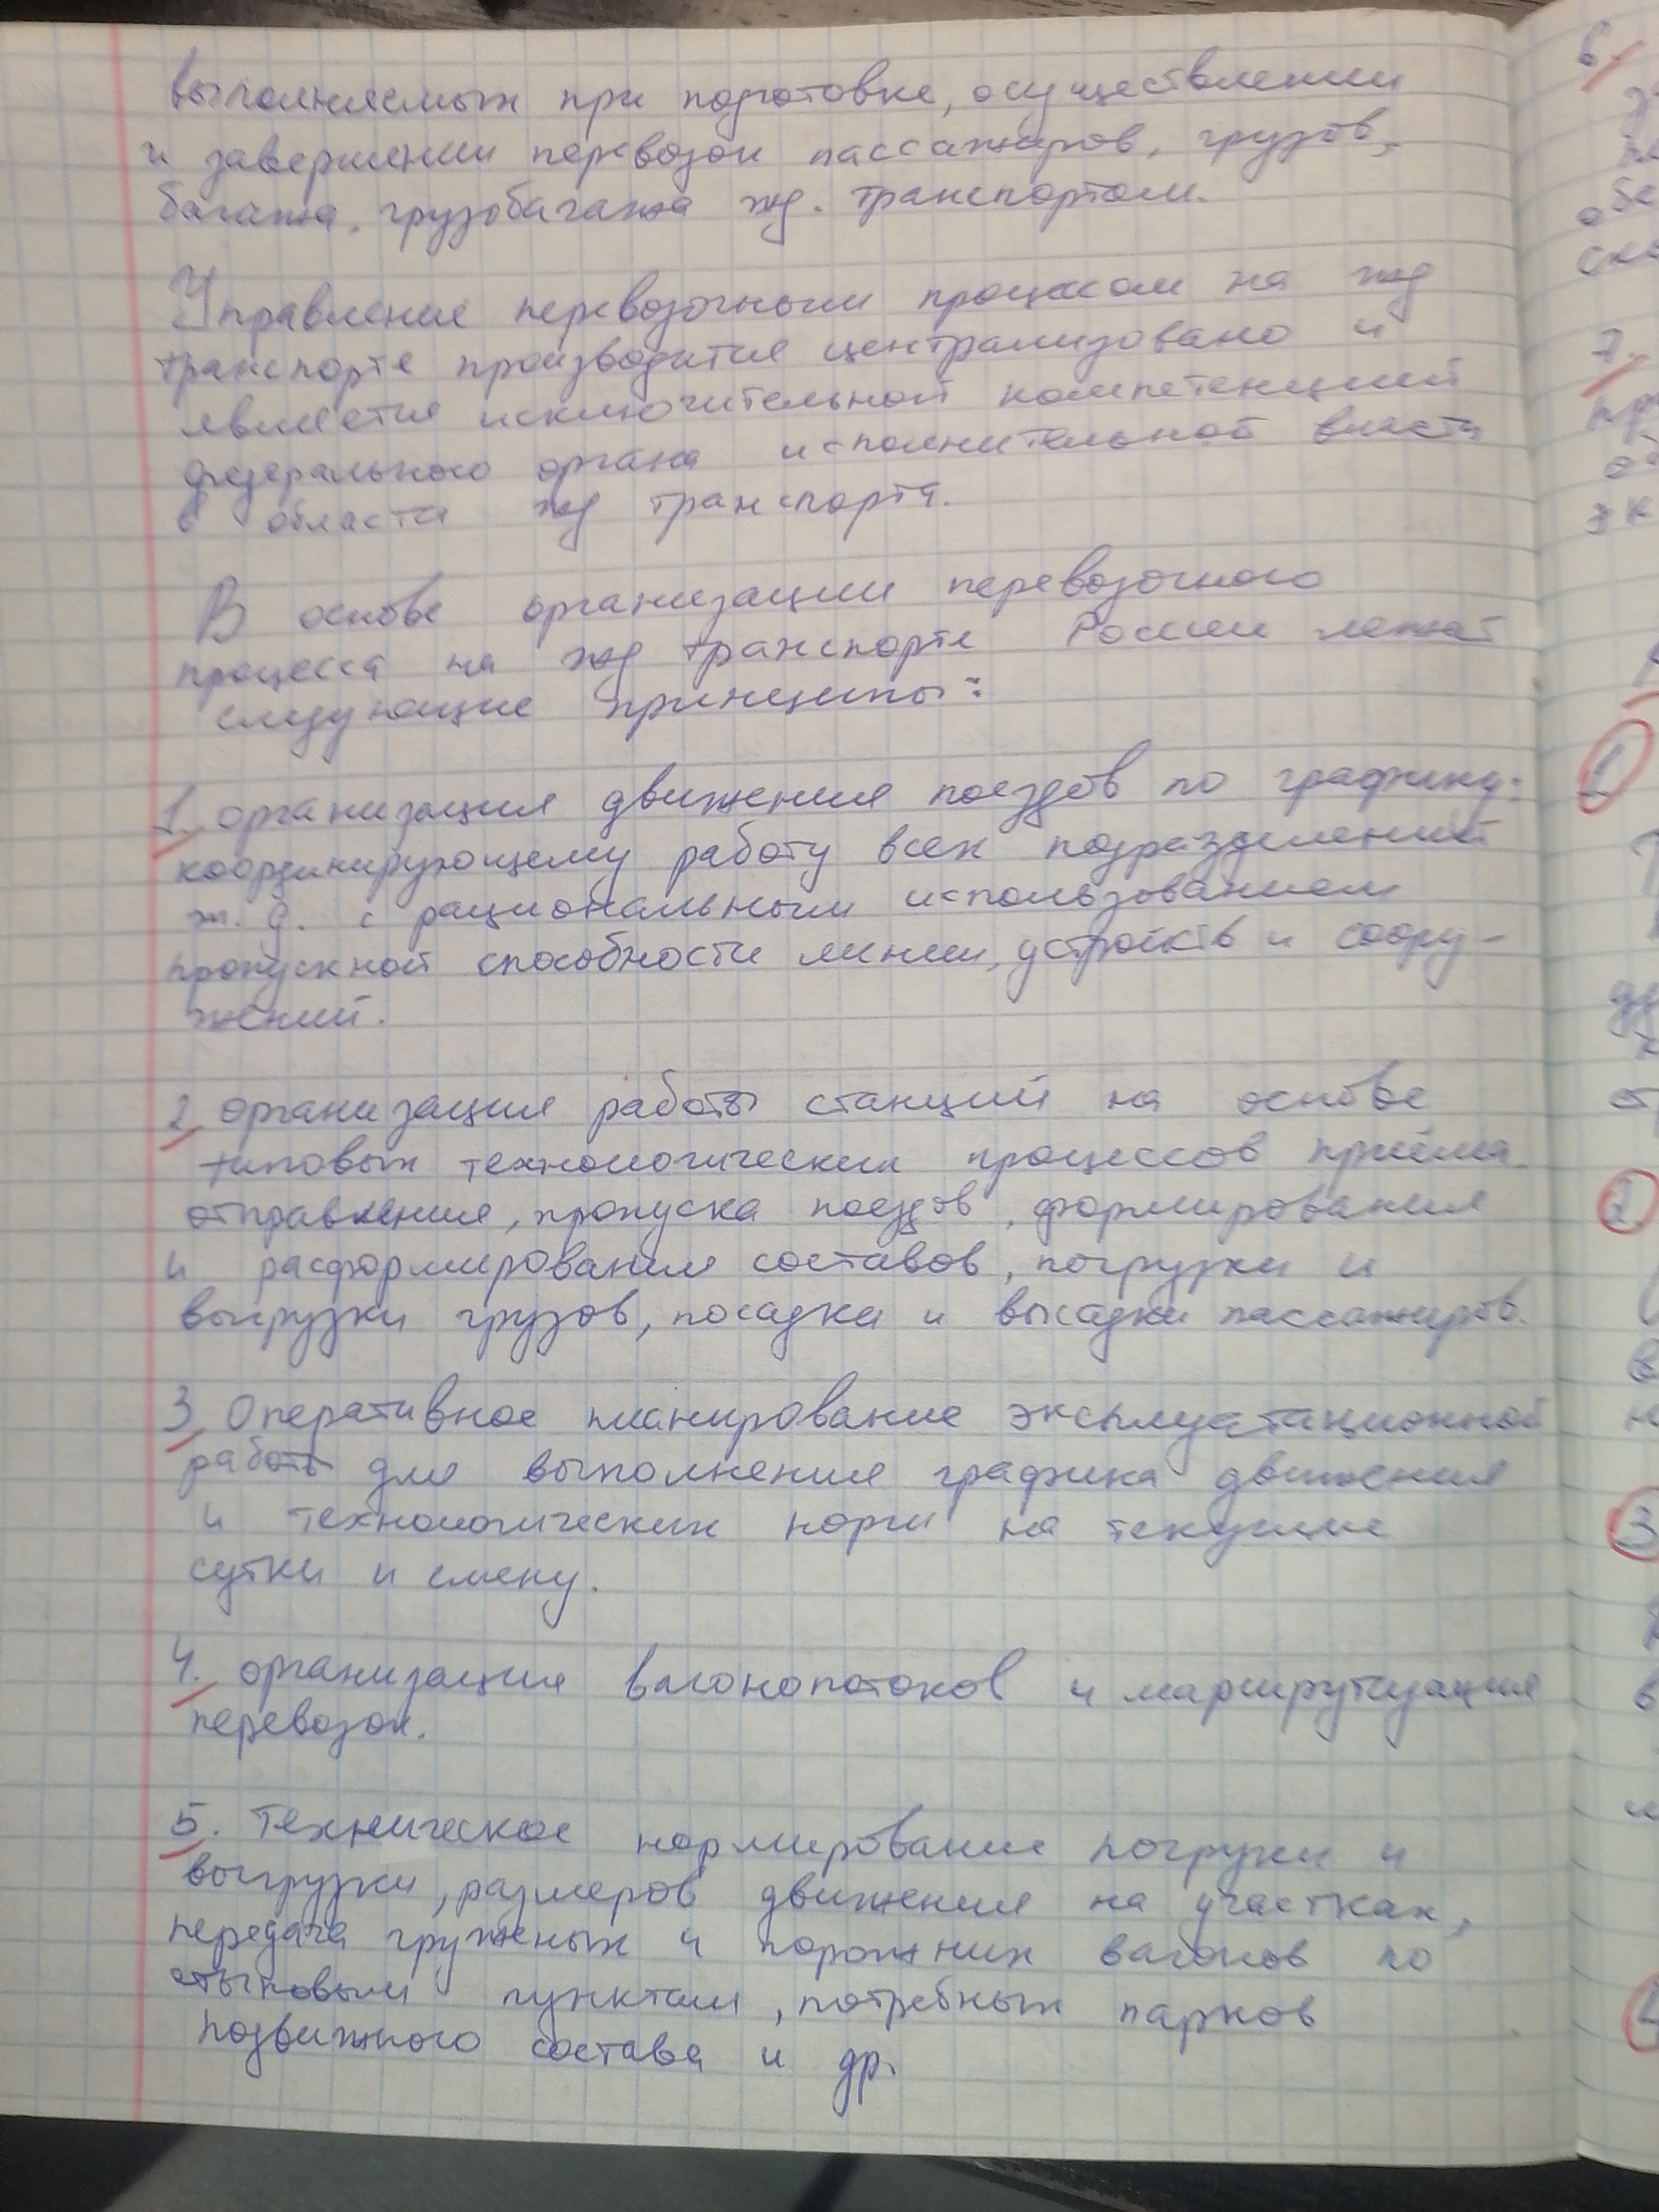 выполняемых при подготовке, осуществлении
и завершении перевозок пассажиров, грузов,
багажа, грузобагажа жд. транспортом.
Управление перевозочным процессом на жд
транспорте производится централизовано и
является исключительной компетенцией
федерального органа исполнительной власти
в области жд транспорта.
В основе организации перевозочного
процесса на жд транспорте России лежат
следующие принципы:
1. организация движения поездов по графику:
координирующему работу всех подразделений
ж. д. с рациональным использованием
пропускной способности линии, устройств и соору-
жений.
2. организация работы станций на основе
типовых технологических процессов приёма.
отправления, пропуска поездов, формирования
и расформирования составов, погрузки и
выгрузки грузов, посадки и высадки пассажиров.
3. Оперативное планирование эксплуатационной
работы для выполнения графика движения
и технологических норм на текущие
сутки и смену.
4. организация вагонопотоков и маршрутизация
перевозок.
5. Техническое нормирование погрузки и
выгрузки, размеров движения на участках,
передача груженых и порожних вагонов по
стыковым пунктам, потребных парков
подвижного состава и др.
6.
7.
1
2.
3